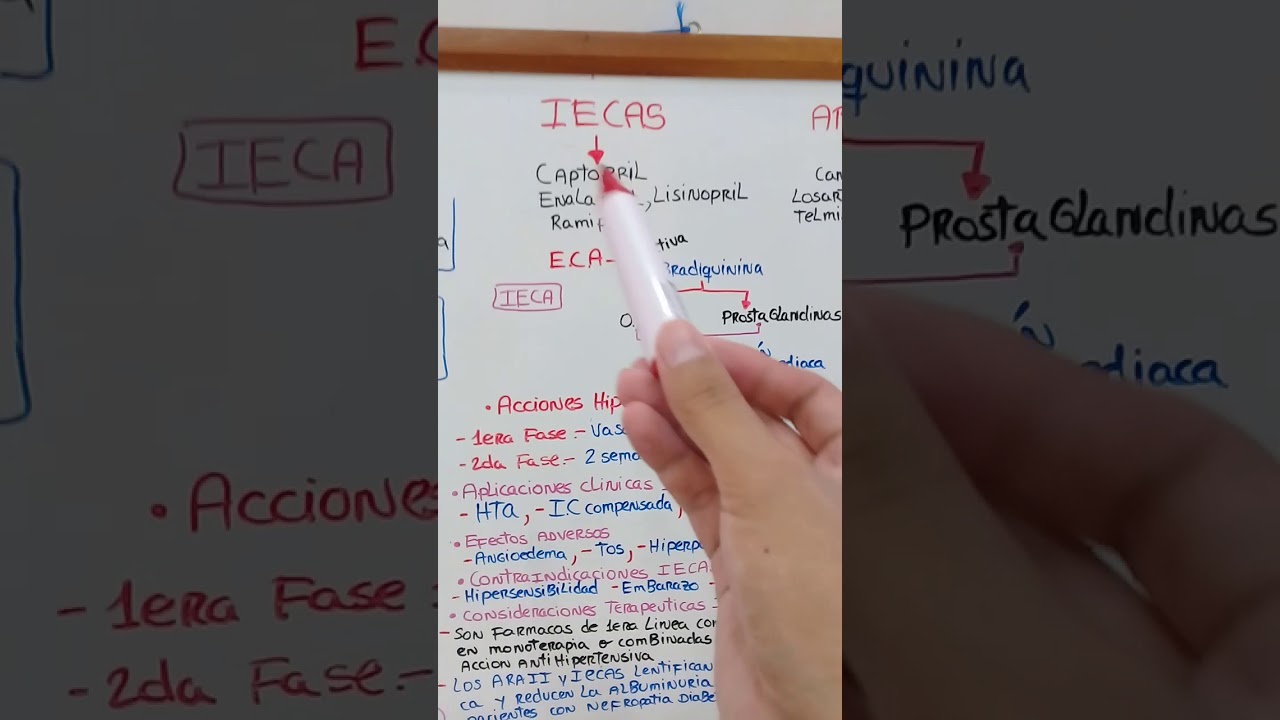 IECAS
CaptopRiL
Enala L, LisinopRiL
Rami
E.C.A-
tiva
Bradiquinina
IECA
ProstaGlandinas
diaca
• Acciones Hip
- 1era Fase:- Vas
- 2da Fase:- 2 sema
• Aplicaciones clinicas -
- HTA, - I.C compensada,
• Efectos ADVERSOS
- Angioedema, - Tos, - Hiperp
• ContraIndicaciones IECA
- Hipersensibilidad - EmBarazo -
• Consideraciones Terapeuticas -
- Son Farmacos de 1era Linea co
en monoterapia o comBinadas
Accion AntiHipertensiva
- Los ARAII y IECAS Lentifican
ca y Reducen La ALBuminuria
pacientes con Nefropatia DiaBe
AR
Can
Losar
Telmi